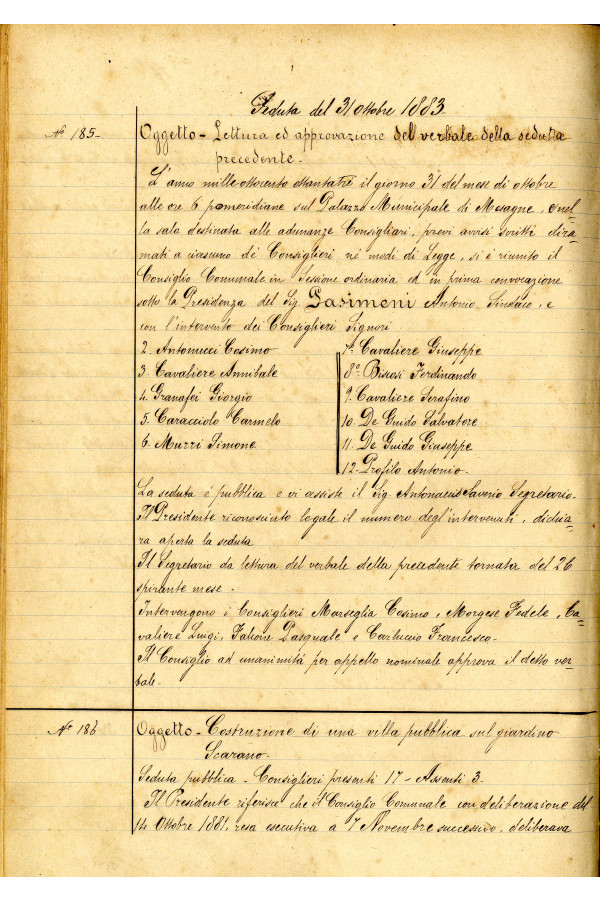 Seduta del 31 Ottobre 1883
Nº 185- Oggetto - Lettura ed approvazione del verbale della seduta
precedente.
L'anno mille ottocento ottantatre il giorno 31 del mese di ottobre
alle ore 6 pomeridiane sul Palazzo Municipale di Mesagne, e nel
la sala destinata alle adunanze Consigliari, previ avvisi scritti dira=
mati a ciascuno dei Consiglieri ne' modi di Legge, si è riunito il
Consiglio Comunale in Sessione ordinaria ed in prima convocazione
sotto la Presidenza del Sig. Pasimeni Antonio, Sindaco, e
con l'intervento dei Consiglieri Signori
2. Antonucci Cosimo
3. Cavaliere Annibale
4. Granafei Giorgio
5. Caracciolo Carmelo
6. Murri Simone
7º Cavaliere Giuseppe
8º Biscosi Ferdinando
9. Cavaliere Serafino
10. De Guido Salvatore
11. De Guido Giuseppe
12. Profilo Antonio.
La seduta è pubblica e vi assiste il Sig. Antonucci Saverio Segretario.
Il Presidente riconosciuto legale il numero degl'intervenuti, dichia=
ra aperta la seduta
Il Segretario da lettura del verbale della precedente tornata del 26
spirante mese.
Intervengono i Consiglieri Marseglia Cosimo, Morgese Fedele, Ca=
valiere Luigi, Falcone Pasquale e Carluccio Francesco.
Il Consiglio ad unanimità per appello nominale approva il detto ver=
bale.
Nº 186 Oggetto - Costruzione di una villa pubblica sul giardino
Scarano.
Seduta pubblica - Consiglieri presenti 17 - Assenti 3.
Il Presidente riferisce che il Consiglio Comunale con deliberazione del
14 Ottobre 1881, resa esecutiva a 7 Novembre successivo, deliberava